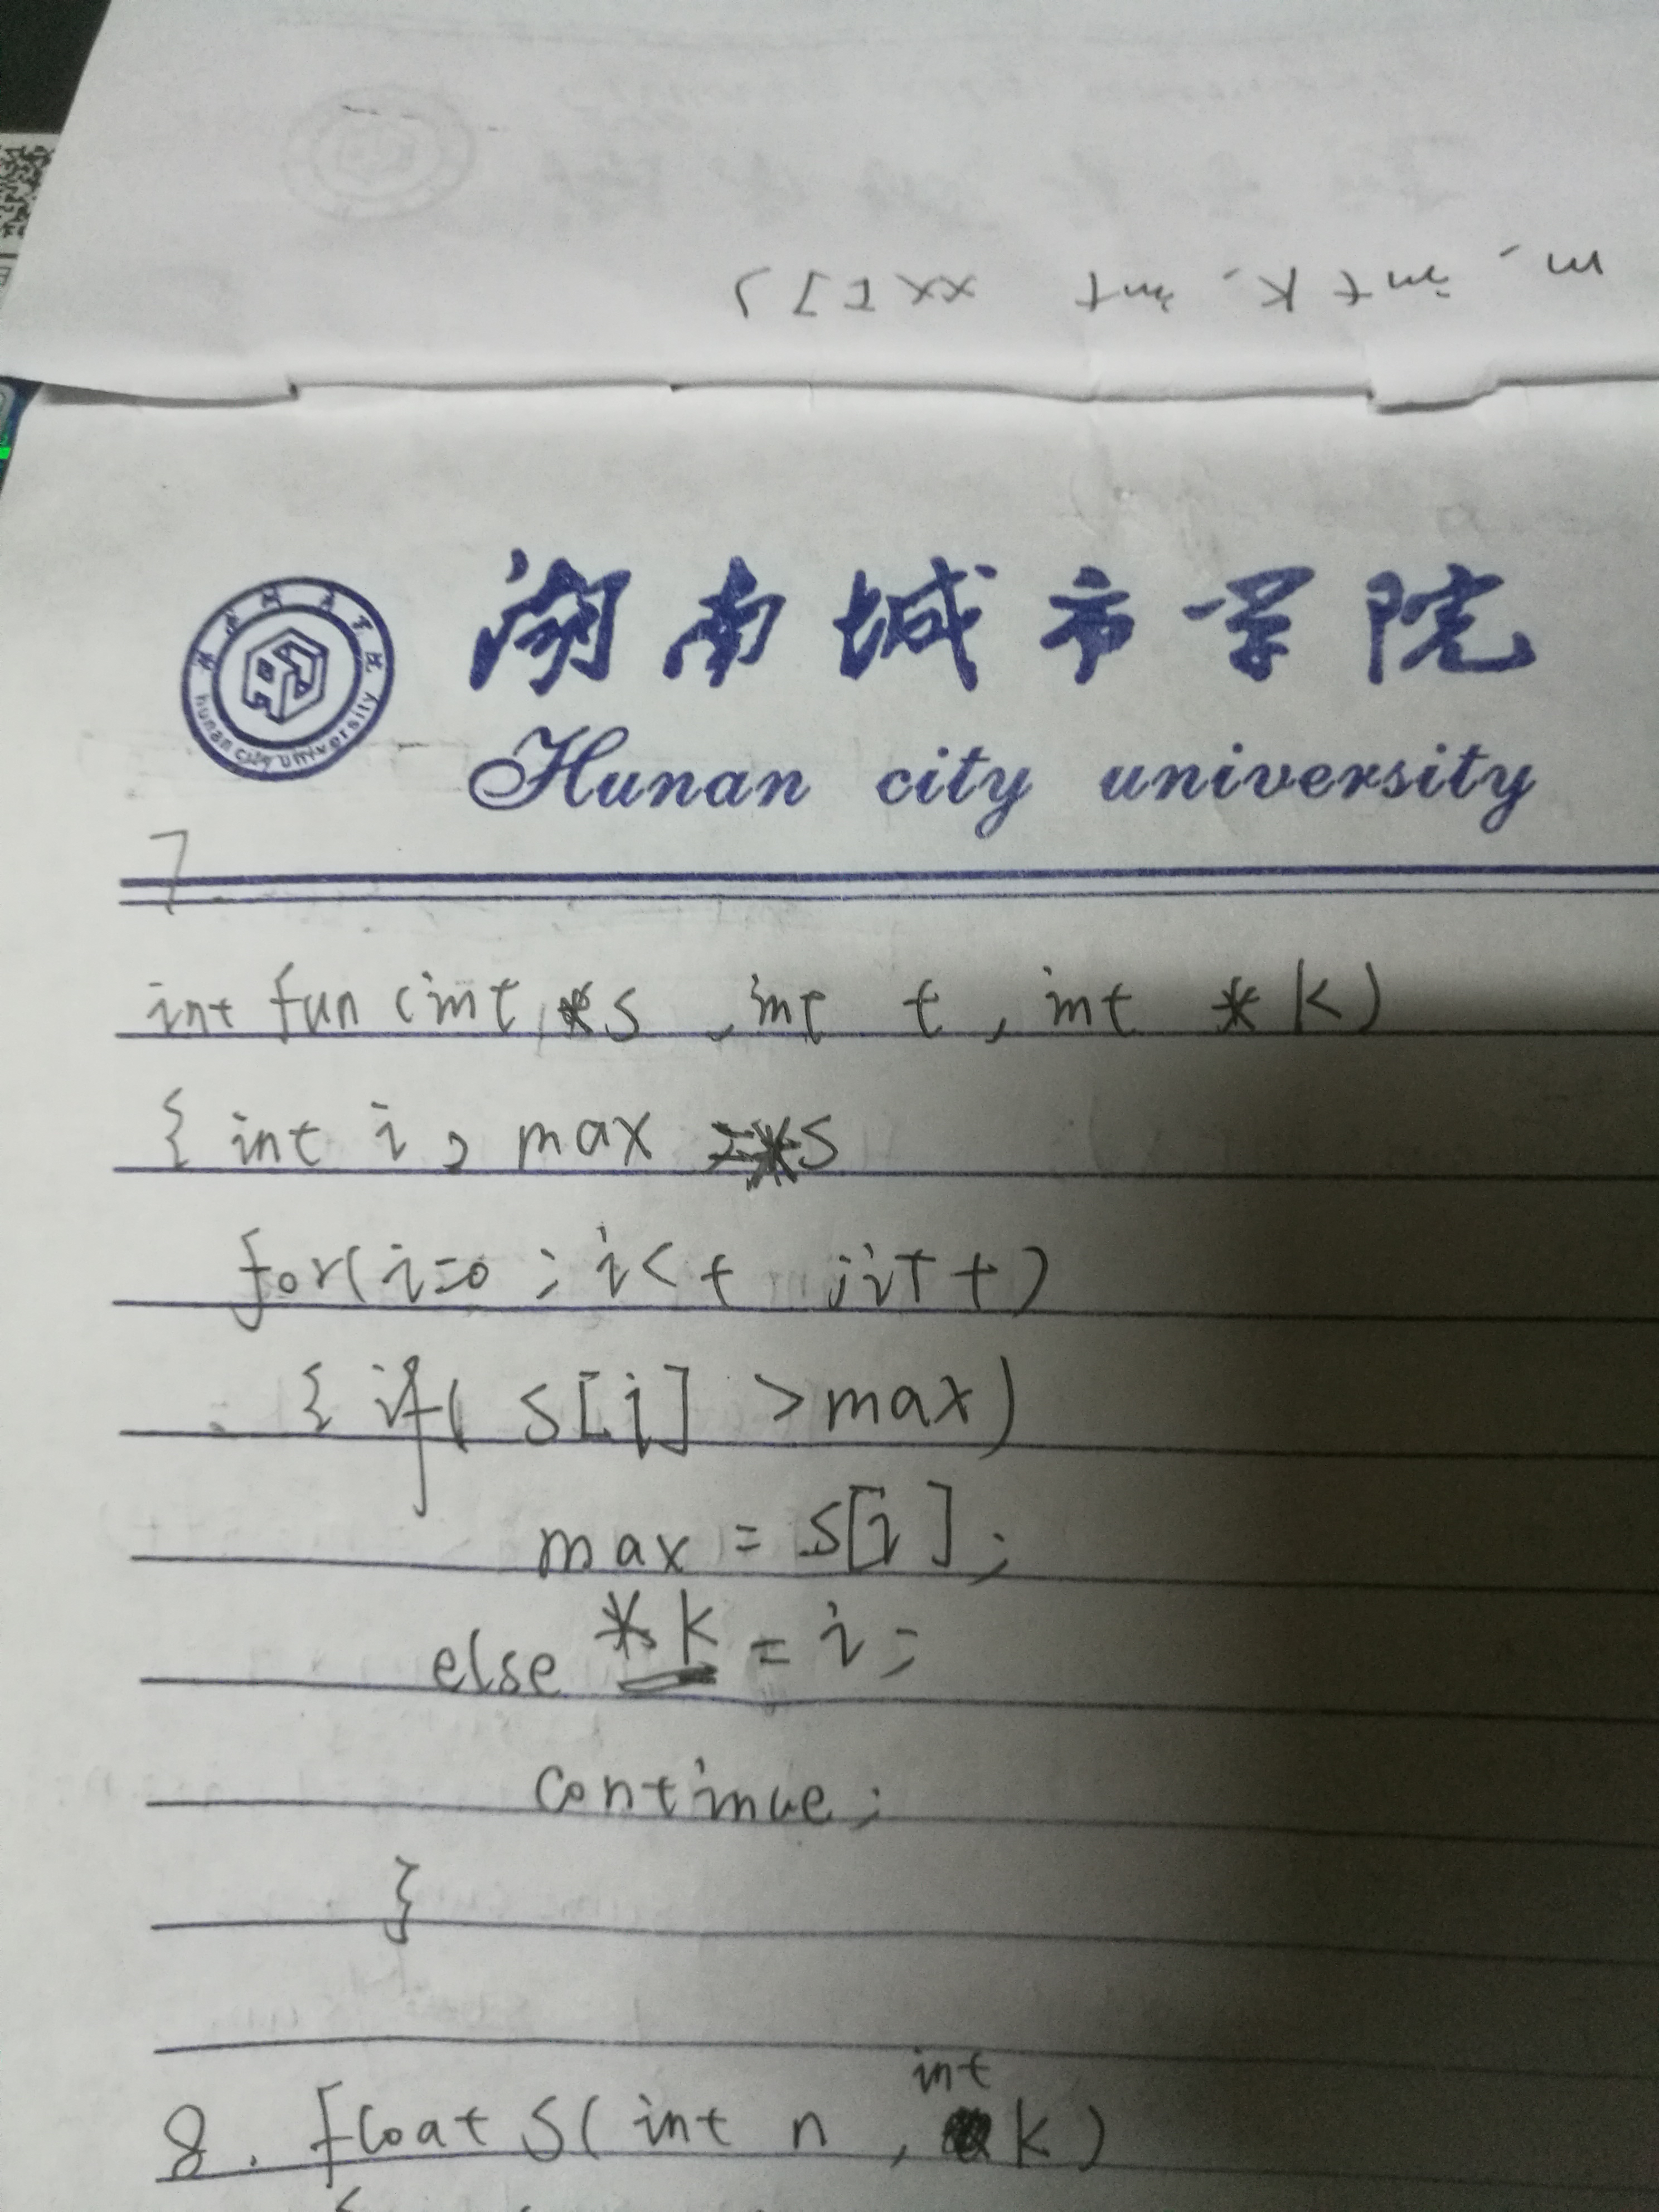 m, int k, int xx[])
湖南城市学院
hunan city university
Hunan city university
7.
int fun(int *s, int t, int *k)
{ int i, max =*s
for(i=0; i<t ;i++)
{ if( s[i] >max)
max = s[i];
else *k = i;
continue;
}
8. float S( int n, int k)
{